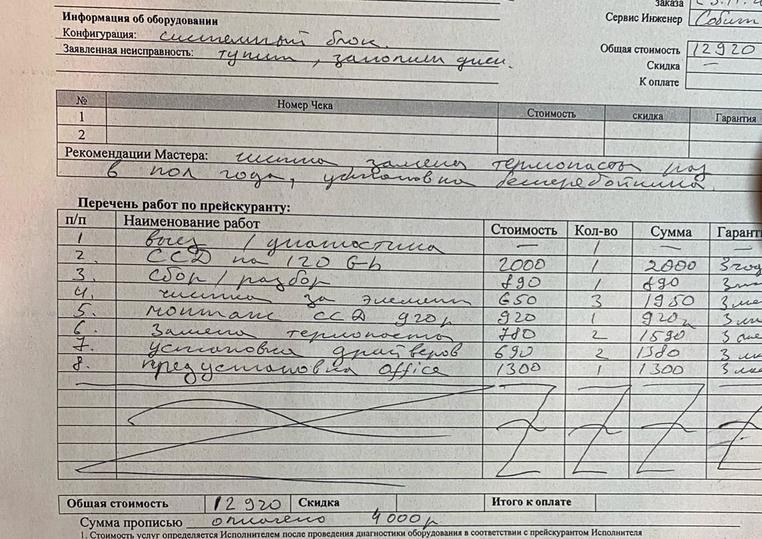 заказа
Информация об оборудовании
Сервис Инженер
Конфигурация: системный блок.
Заявленная неисправность: тупит, заполнен диск.
Общая стоимость 12920
Скидка —
К оплате
№ Номер Чека Стоимость скидка Гарантия
1
2
Рекомендации Мастера: чистка, замена термопасты раз
в пол года, установка бесперебойника.
Перечень работ по прейскуранту:
п/п Наименование работ Стоимость Кол-во Сумма Гарант
1 выезд / диагностика — 1 — —
2. ССД на 120 Gb 2000 1 2000 3 год
3. сбор / разбор 890 1 890
4. чистка за элемент 650 3 1950
5. монтаж ССД 920р 920 1 920
6. Замена термопасты 780 2
7. установка драйверов 690 2 1380
8. предустановка office 1300 1 1300
Общая стоимость 12920 Скидка Итого к оплате
Сумма прописью оплачено 4000р
1. Стоимость услуг определяется Исполнителем после проведения диагностики оборудования в соответствии с прейскурантом Исполнителя